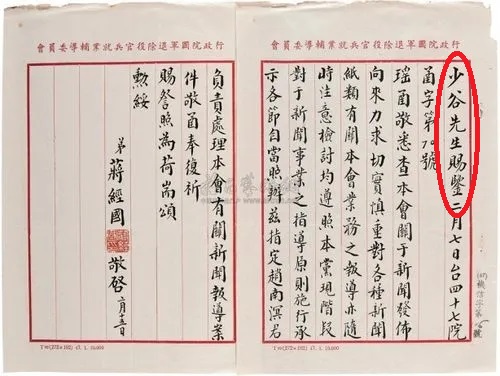 行政院國軍退除役官兵就業輔導委員會
少谷先生賜鑒二月七日台四十七院
函字第70號
瑤函敬悉查本會關于新聞發佈
向來力求切實慎重對各種新聞
紙類有關本會業務之報導亦隨
時注意檢討均遵照本黨現階段
對于新聞事業之指導原則施行承
示各節自當照辦茲指定趙南溟君
行政院國軍退除役官兵就業輔導委員會
負責處理本會有關新聞報導業
件敬函奉復祈
賜詧照為荷耑頌
勛綏
弟 蔣經國 敬啓
47. 1. 10,000
47. 1. 10,000